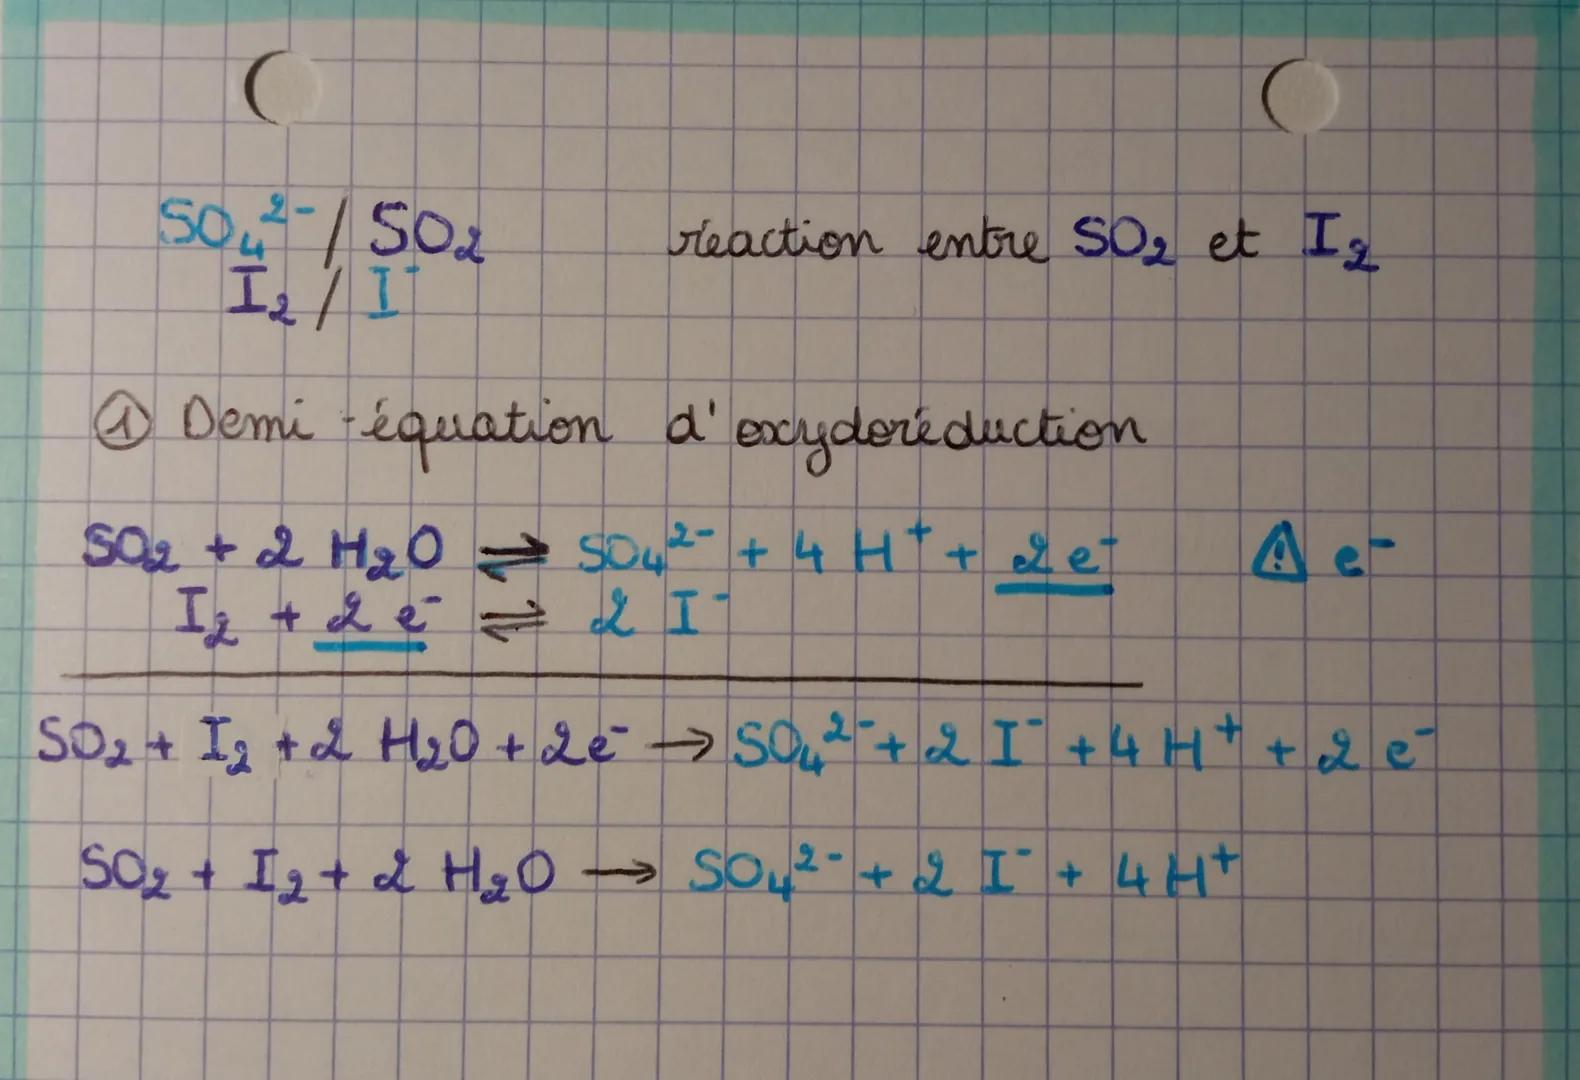 SO₄²⁻ / SO₂ réaction entre SO₂ et I₂
I₂ / I⁻
① Demi-équation d'oxydoréduction
SO₂ + 2 H₂O ⇌ SO₄²⁻ + 4 H⁺ + 2 e⁻ ⚠ e⁻
I₂ + 2 e⁻ ⇌ 2 I⁻
SO₂ + I₂ + 2 H₂O + 2e⁻ → SO₄²⁻ + 2 I⁻ + 4 H⁺ + 2 e⁻
SO₂ + I₂ + 2 H₂O → SO₄²⁻ + 2 I⁻ + 4 H⁺